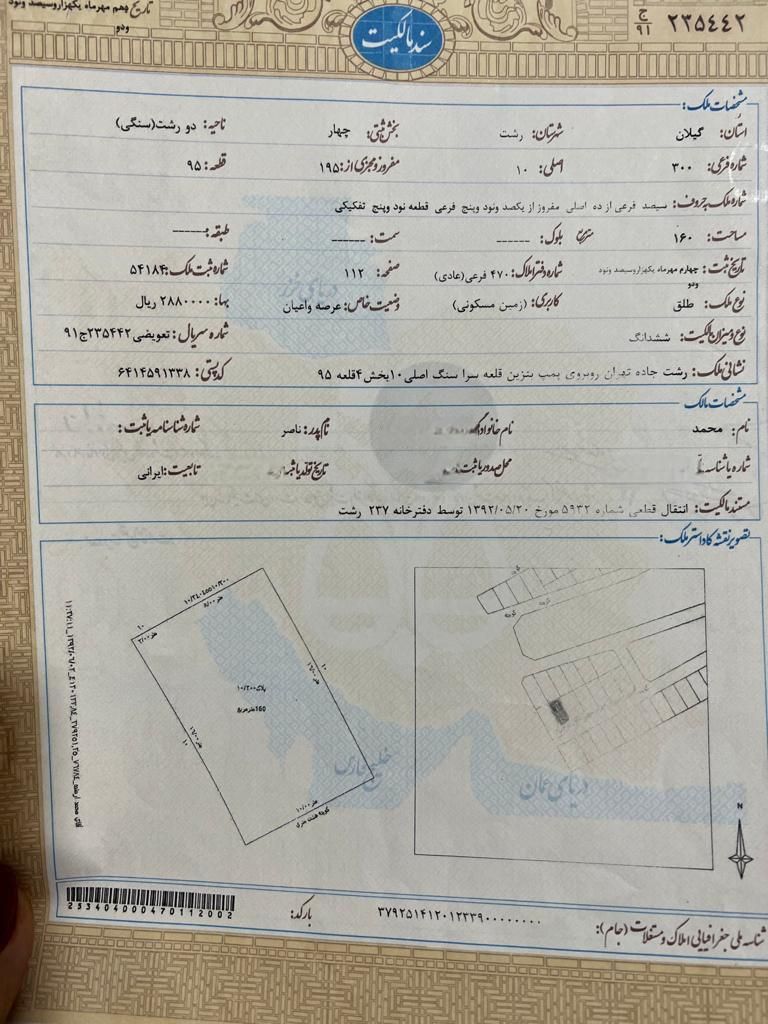 تاریخ دهم مهرماه یکهزاروسیصد ونود
ودو
سند مالکیت
۲۳۵۴۴۲ ج ۹۱
مشخصات ملک:
استان: گیلان شهرستان: رشت بخش ثبتی: چهار ناحیه: دو رشت(سنگی)
شماره فرعی: ۳۰۰ اصلی: ۱۰ مفروز و مجزی از: ۱۹۵ قطعه: ۹۵
شماره ملک بحروف: سیصد فرعی از ده اصلی مفروز از یکصد ونود وپنج فرعی قطعه نود وپنج تفکیکی
مساحت: ۱۶۰ مترمربع بلوک: ------ سمت: ------ طبقه: ------
تاریخ ثبت: چهارم مهرماه یکهزاروسیصد ونود شماره دفتر املاک: ۴۷۰ فرعی(عادی) صفحه: ۱۱۲ شماره ثبت ملک: ۵۴۱۸۴
ودو
نوع ملک: طلق کاربری: (زمین مسکونی) وضعیت خاص: عرصه واعیان بها: ۲۸۸۰۰۰۰ ریال
نوع و میزان مالکیت: ششدانگ شماره سریال: تعویضی۲۳۵۴۴۲ج۹۱
نشانی ملک: رشت جاده تهران روبروی پمپ بنزین قلعه سرا سنگ اصلی۱۰بخش۴قلعه ۹۵ کدپستی: ۶۴۱۴۵۹۱۳۳۸
مشخصات مالک:
نام: محمد نام خانوادگی: نام پدر: ناصر شماره شناسنامه یا ثبت:
شماره یا شناسه محل صدور یا ثبت: تاریخ تولد یا ثبت: تابعیت: ایرانی
مستند مالکیت: انتقال قطعی شماره ۵۹۳۲ مورخ ۱۳۹۲/۰۵/۲۰ توسط دفترخانه ۲۳۷ رشت
تصویر نقشه کاداستر ملک:
دریای خزر
کوچه
کوچه
۱۰
۲/۰۰متر
۸/۰۰ متر
۱۰
۱۶/۰۰ متر
160مترمربع
۱۶/۰۰ متر
۱۰
۱۰/۰۰ متر
کوچه هشت متری
خلیج فارس
دریای عمان
N
شناسه ملی جغرافیایی املاک و مستغلات (جام): ۳۷۹۲۵۱۴۱۲۰۱۲۳۳۹۰۰۰۰۰۰۰۰۰
بارکد: 253404000470112002